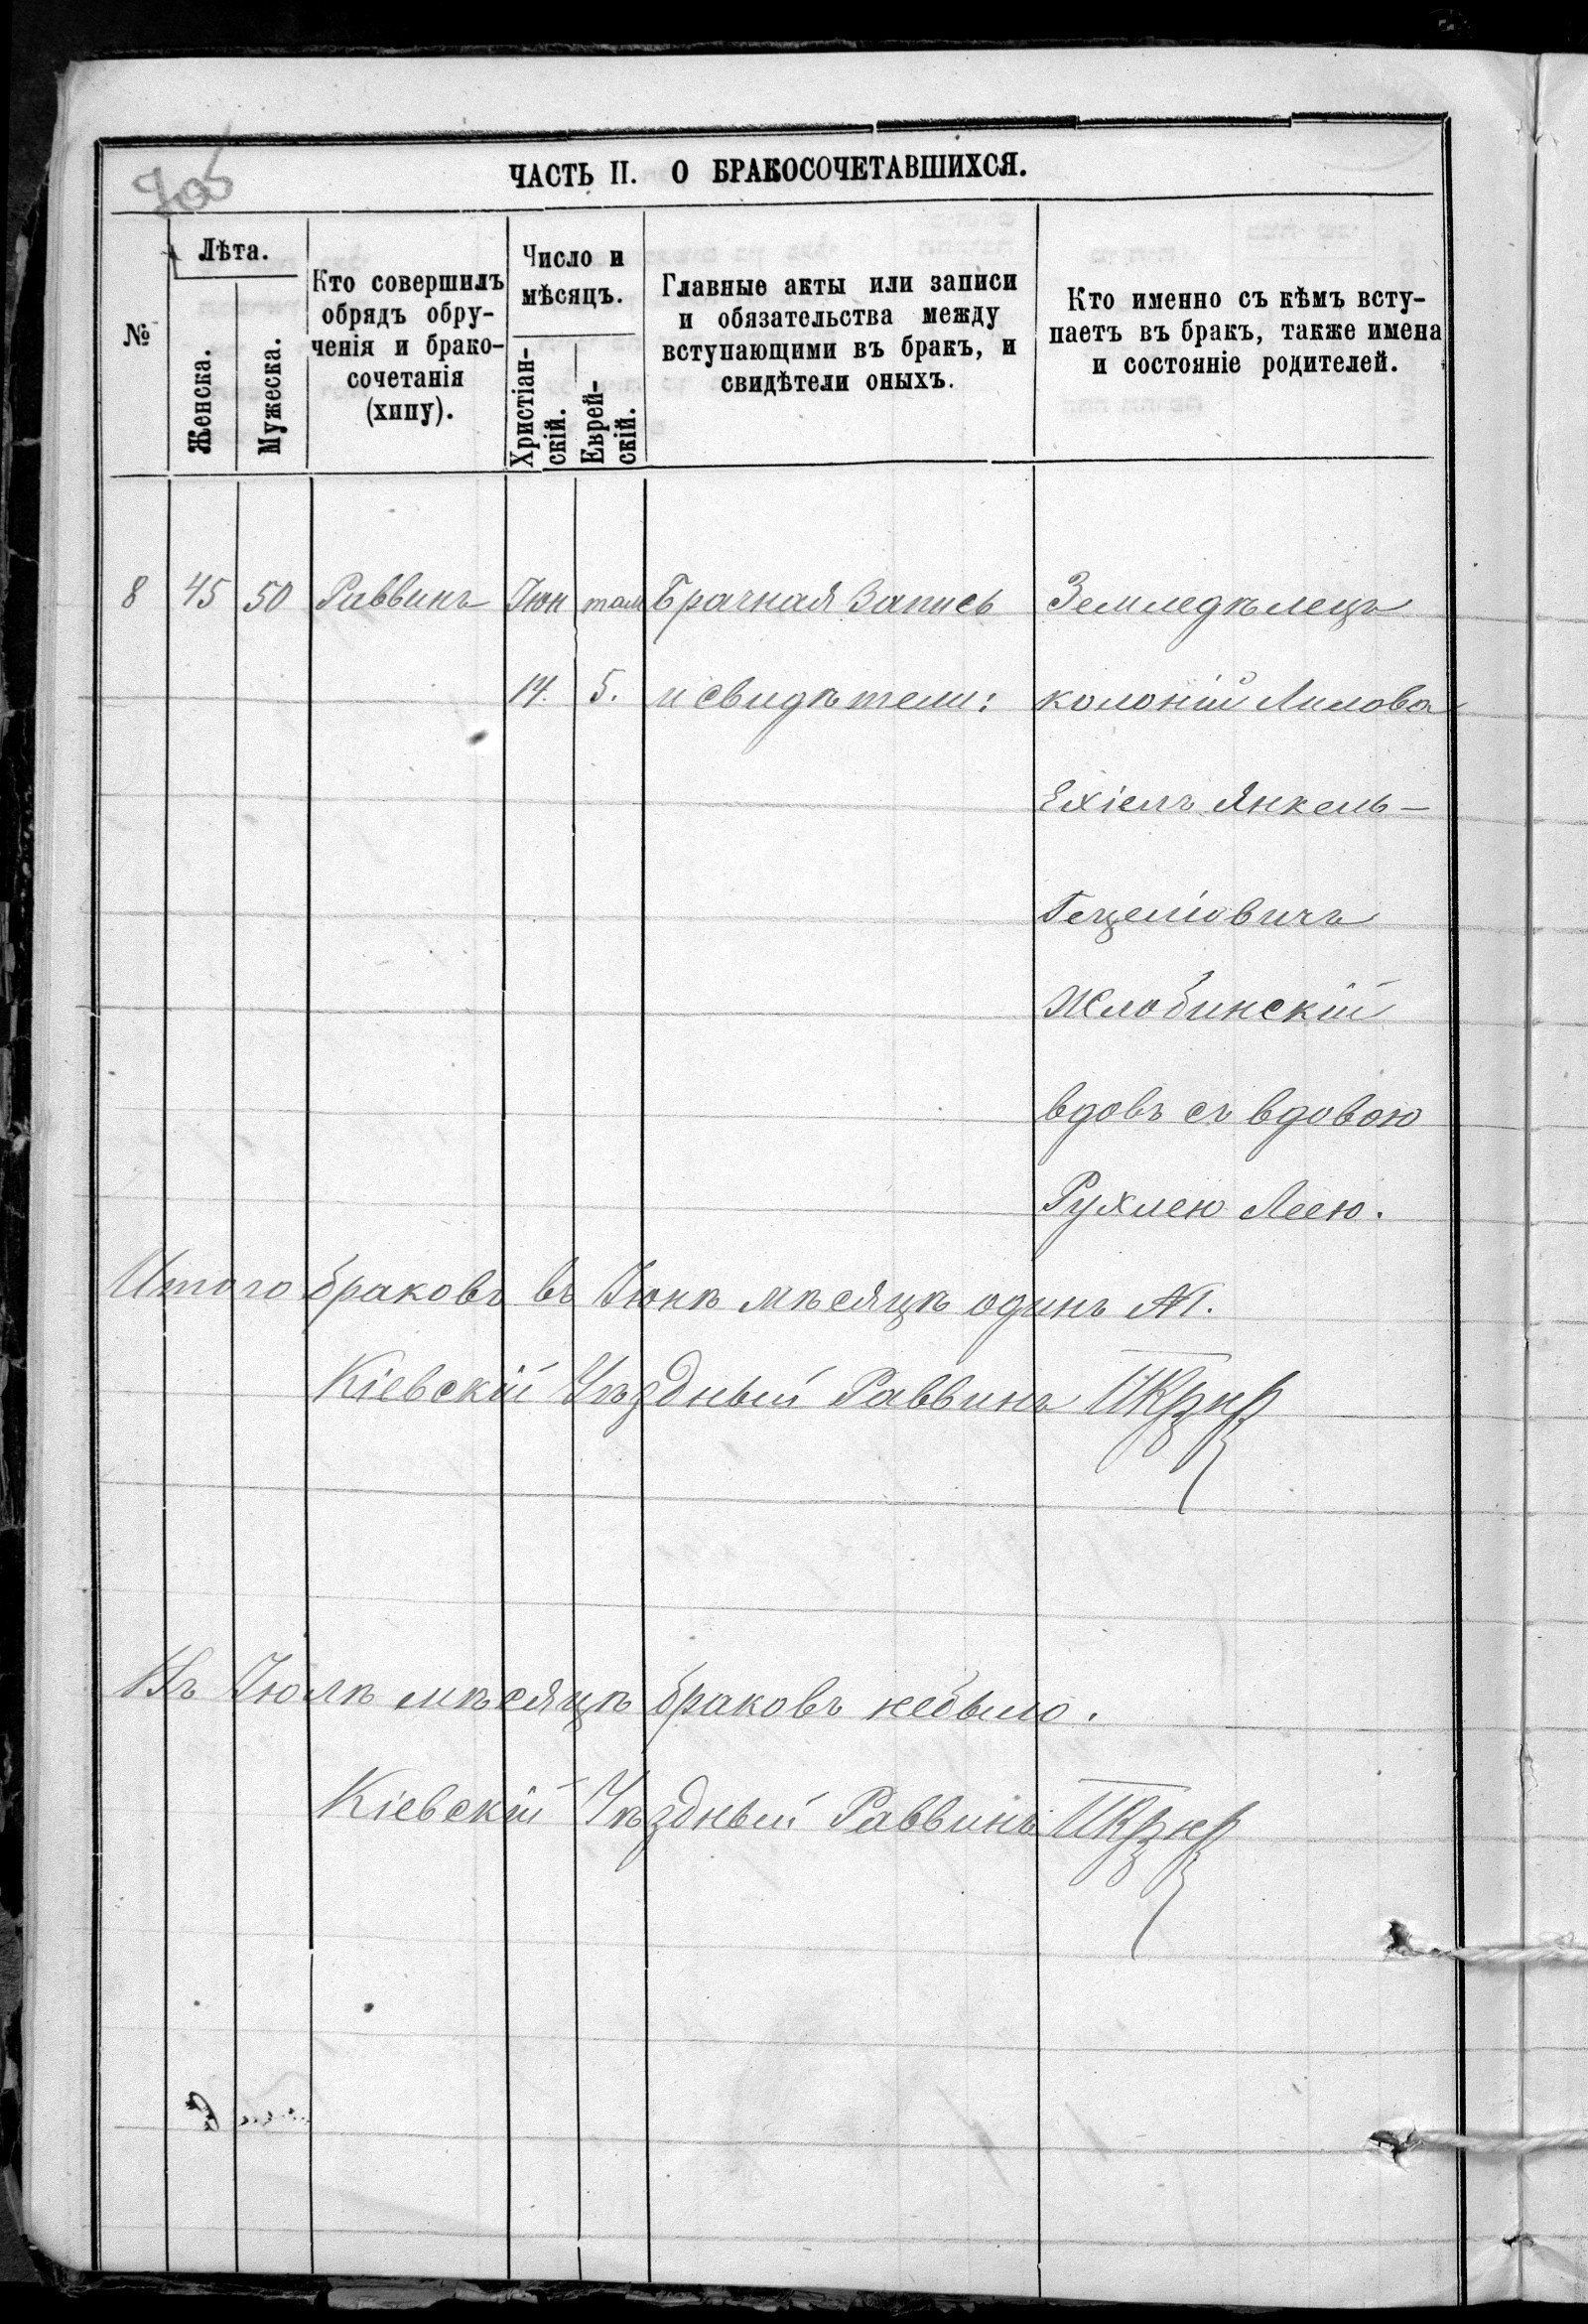 705
ЧАСТЬ II. О БРАКОСОЧЕТАВШИХСЯ.
№
Лѣта.
Женска.
Мужеска.
Кто совершилъ
обрядъ обру-
ченія и брако-
сочетанія
(хипу).
Число и
мѣсяцъ.
Христіан-
скій.
Еврей-
скій.
Главные акты или записи
и обязательства между
вступающими въ бракъ, и
свидѣтели оныхъ.
Кто именно съ кѣмъ всту-
паетъ въ бракъ, также имена
и состояніе родителей.
8 45 50 Раввинъ Іюн там Брачная Запись Земледѣлецъ
14. 5. и свидѣтели: колоніи
Ехіелъ Янкель-
Гецеліовичъ
Жлобинскій
вдовъ съ вдовою
Рухлею Леею.
Итого браковъ въ Іюнѣ мѣсяцѣ одинъ №1.
Кіевскій Уѣздный Раввинъ
Въ Іюлѣ мѣсяцѣ браковъ небыло.
Кіевскій Уѣздный Раввинъ